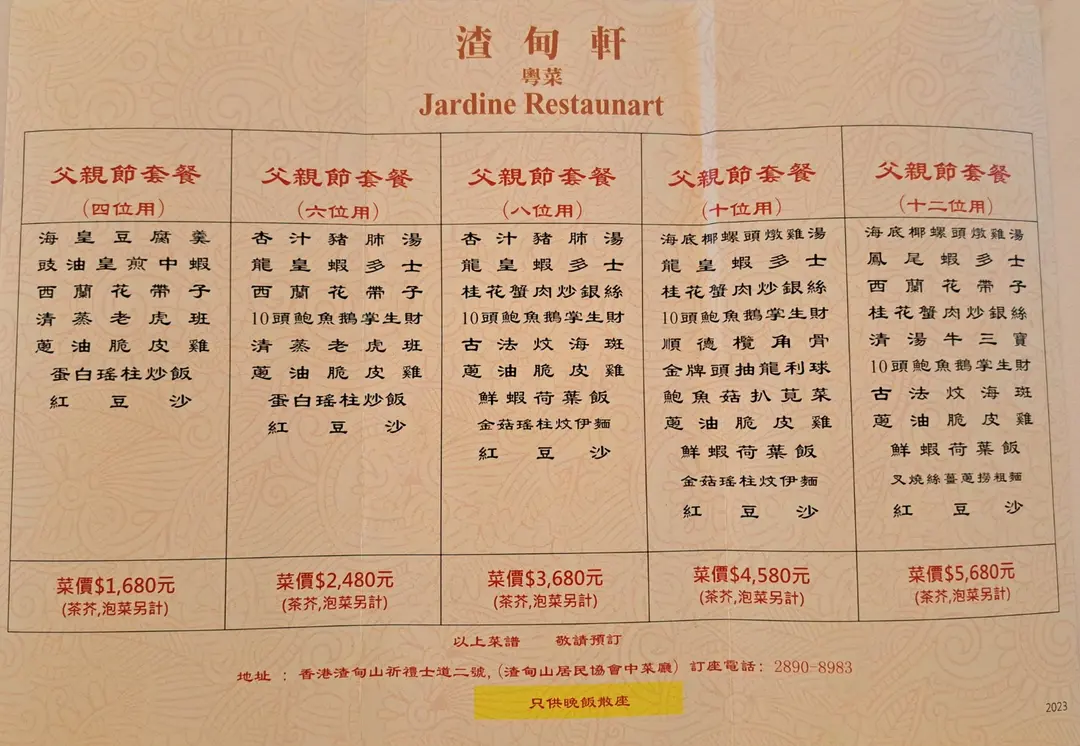 渣甸軒
粵菜
Jardine Restaunart
父親節套餐
(四位用)
海皇豆腐羹
豉油皇煎中蝦
西蘭花帶子
清蒸老虎班
蔥油脆皮雞
蛋白瑤柱炒飯
紅豆沙
菜價$1,680元
(茶芥,泡菜另計)
父親節套餐
(六位用)
杏汁豬肺湯
龍皇蝦多士
西蘭花帶子
10頭鮑魚鵝掌生財
清蒸老虎班
蔥油脆皮雞
蛋白瑤柱炒飯
紅豆沙
菜價$2,480元
(茶芥,泡菜另計)
父親節套餐
(八位用)
杏汁豬肺湯
龍皇蝦多士
桂花蟹肉炒銀絲
10頭鮑魚鵝掌生財
古法炆海斑
蔥油脆皮雞
鮮蝦荷葉飯
金菇瑤柱炆伊麵
紅豆沙
菜價$3,680元
(茶芥,泡菜另計)
父親節套餐
(十位用)
海底椰螺頭燉雞湯
龍皇蝦多士
桂花蟹肉炒銀絲
10頭鮑魚鵝掌生財
順德欖角骨
金牌頭抽龍利球
鮑魚菇扒莧菜
蔥油脆皮雞
鮮蝦荷葉飯
金菇瑤柱炆伊麵
紅豆沙
菜價$4,580元
(茶芥,泡菜另計)
父親節套餐
(十二位用)
海底椰螺頭燉雞湯
鳳尾蝦多士
西蘭花帶子
桂花蟹肉炒銀絲
清湯牛三寶
10頭鮑魚鵝掌生財
古法炆海斑
蔥油脆皮雞
鮮蝦荷葉飯
叉燒絲薑蔥撈粗麵
紅豆沙
菜價$5,680元
(茶芥,泡菜另計)
以上菜譜 敬請預訂
地址 : 香港渣甸山祈禮士道二號,(渣甸山居民協會中菜廳) 訂座電話: 2890-8983
只供晚飯散座
2023